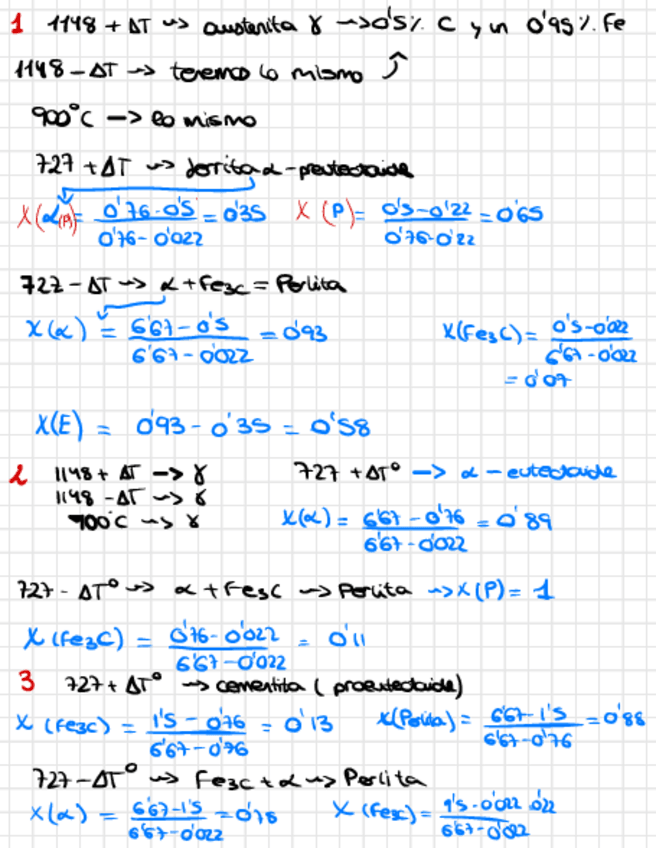 1 1148 + ΔT → austenita γ → 0'5% C y un 0'95% Fe
1148 - ΔT → tenemos lo mismo
900°C → lo mismo
727 + ΔT → ferrita α - proeutectoide
X(α(P)) = (0'76 - 0'5)/(0'76 - 0'022) = 0'35 X(P) = (0'5 - 0'22)/(0'76 - 0'22) = 0'65
727 - ΔT → α + Fe3C = Perlita
X(α) = (6'67 - 0'5)/(6'67 - 0'022) = 0'93 X(Fe3C) = (0'5 - 0'022)/(6'67 - 0'022)
= 0'07
X(E) = 0'93 - 0'35 = 0'58
2 1148 + ΔT → γ 727 + ΔT° → α - eutectoide
1148 - ΔT → γ
900°C → γ X(α) = (6'67 - 0'76)/(6'67 - 0'022) = 0'89
727 - ΔT° → α + Fe3C → Perlita → X(P) = 1
X(Fe3C) = (0'76 - 0'022)/(6'67 - 0'022) = 0'11
3 727 + ΔT° → cementita (proeutectoide)
X(Fe3C) = (1'5 - 0'76)/(6'67 - 0'76) = 0'13 X(Perlita) = (6'67 - 1'5)/(6'67 - 0'76) = 0'88
727 - ΔT° → Fe3C + α → Perlita
X(α) = (6'67 - 1'5)/(6'67 - 0'022) = 0'78 X(Fe3C) = (1'5 - 0'022)/(6'67 - 0'022)